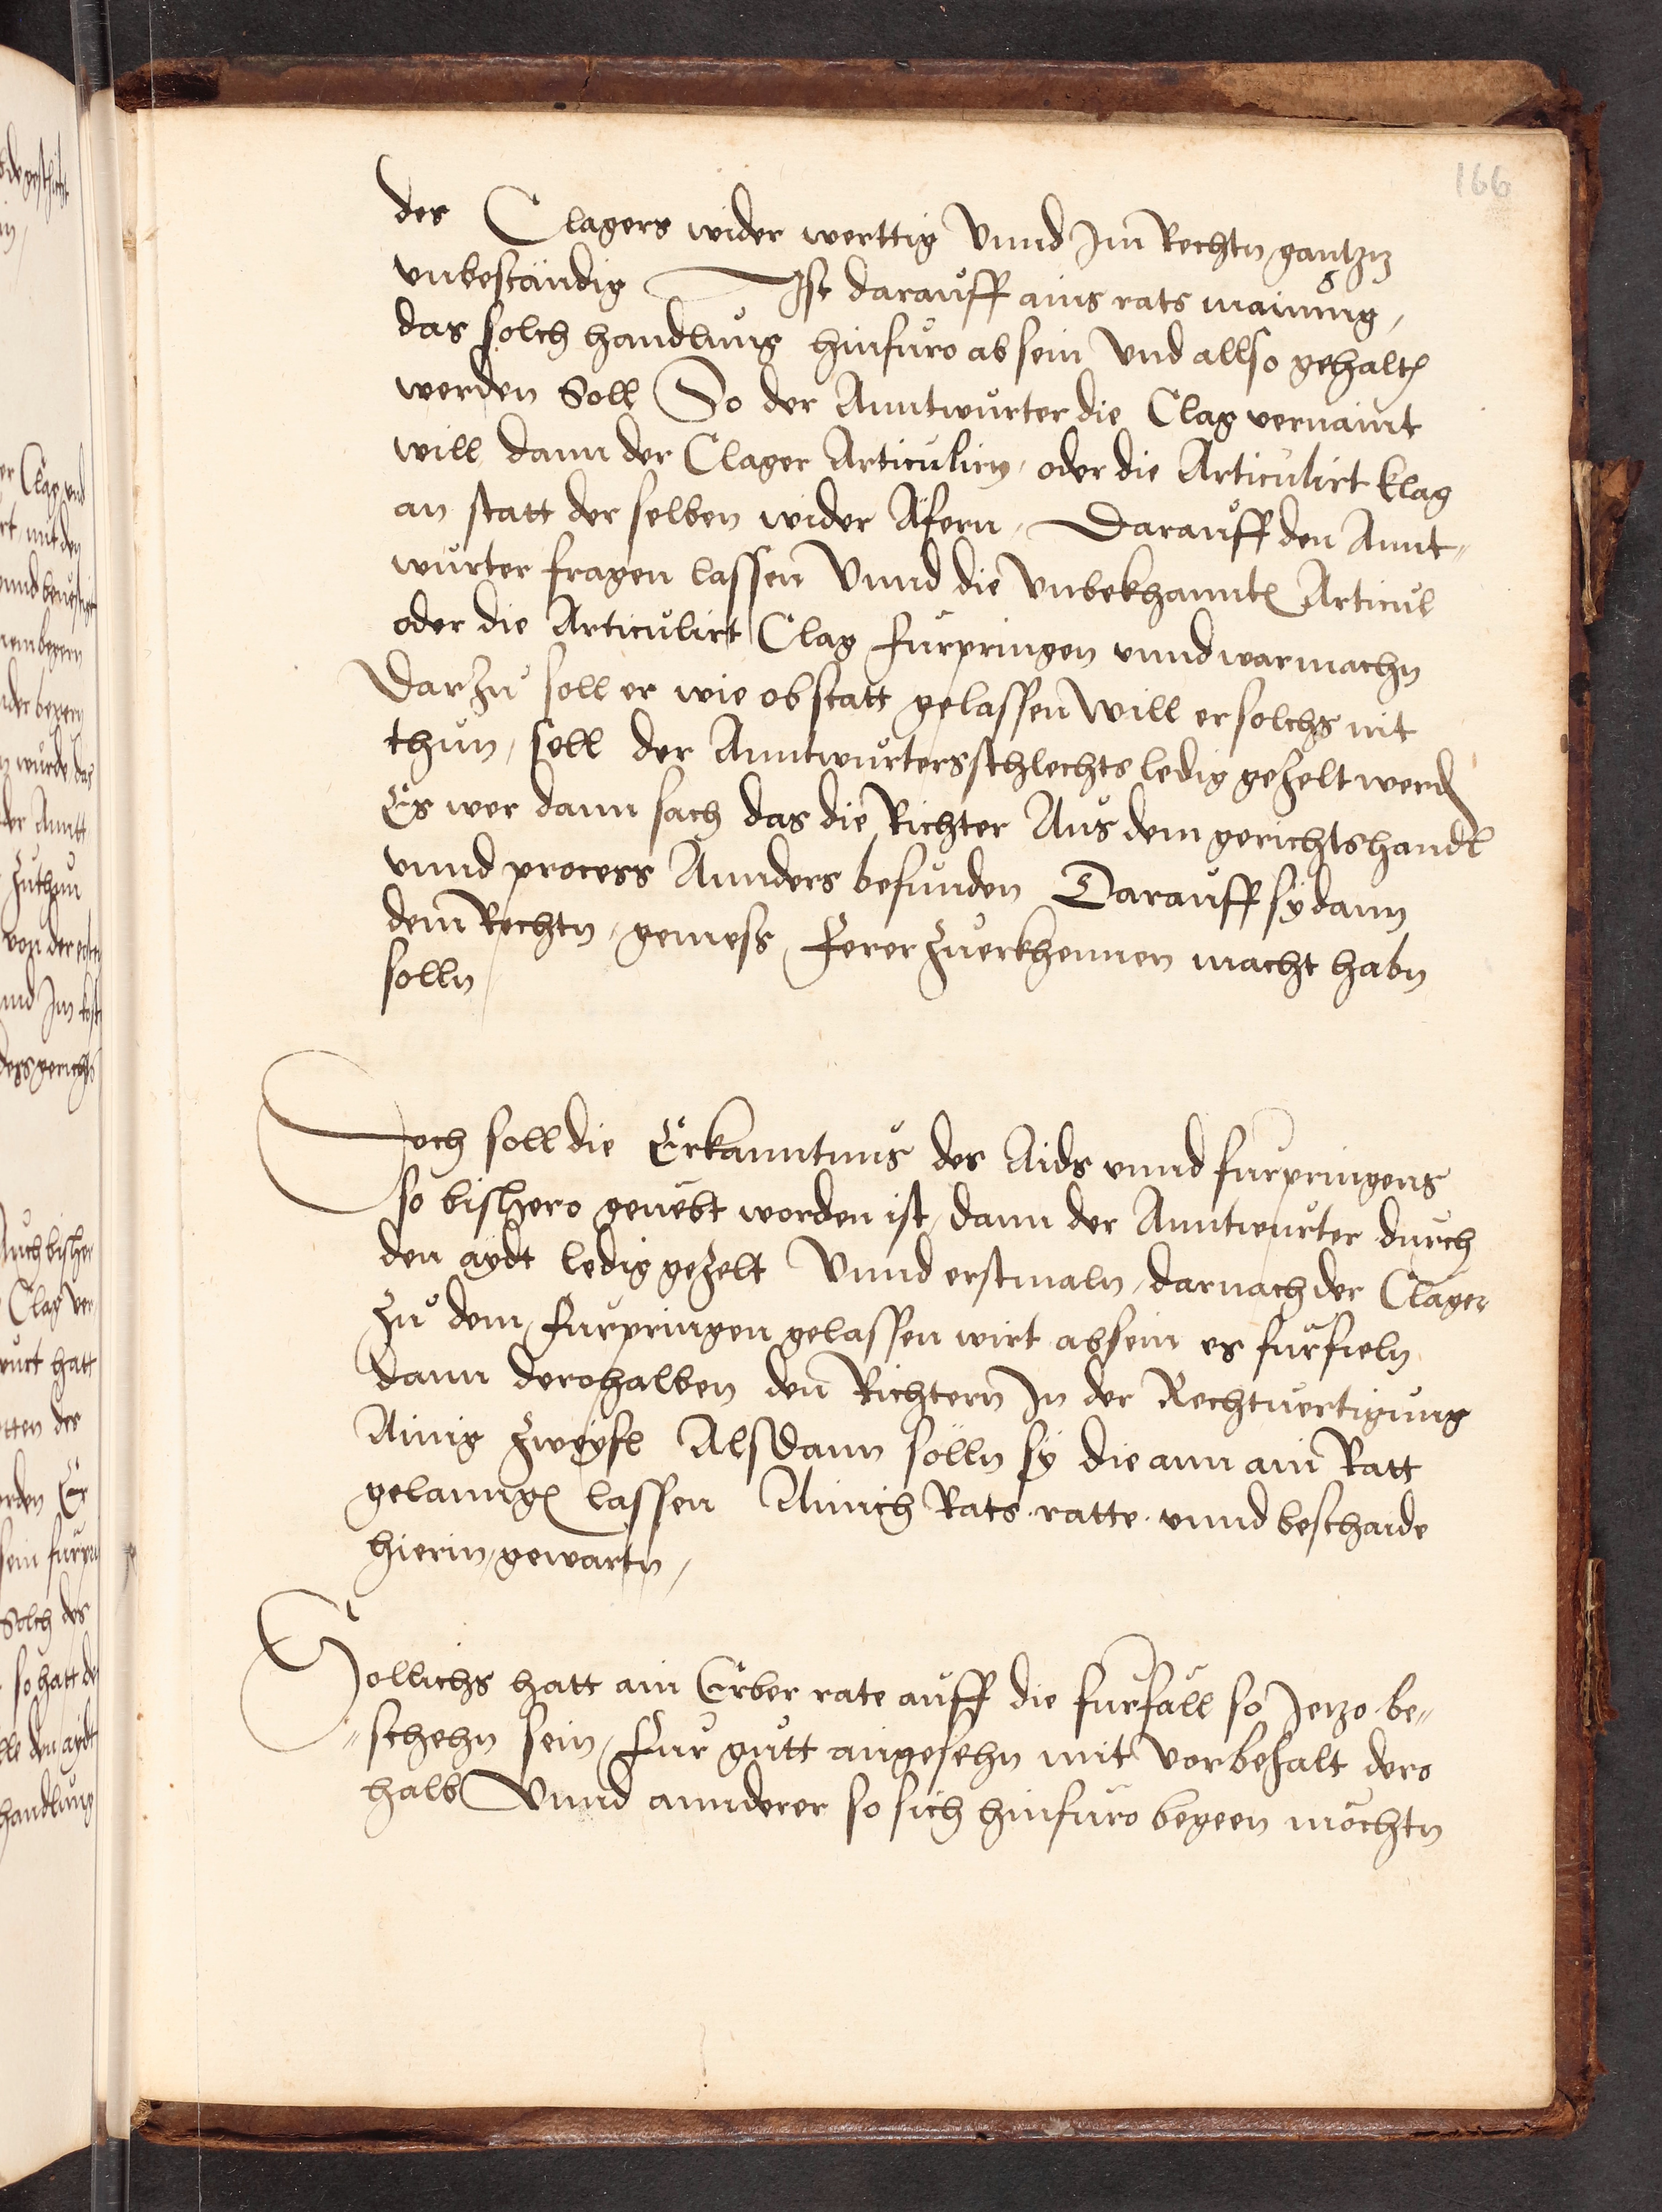 166
des Clagers wider werttig Vnnd Im Rechtn gantzn
vnbeständig Ist darauff ains rats mainung,
das solch handlung hinfuro ab sein vnd allso gehalten
werden Soll So der Anntwurter die Clag vernaint
will dann der Clager Articulirn, oder die Articulirt klag
an statt der selben wider Äfern, Darauff den Annt-
wurter fragen lassen Vnnd die Vnbekhannten Articul
oder die Articulirt Clag furpringen vnnd war machn
Darzu soll er wie ob statt gelassen Will er solchs nit
thun, soll der Anntwurter schlechts ledig gezelt werden
Es wer dann sach das die Richter Aus dem gerichtshandl
vnnd process Annders befunden Darauff sy dann
dem Rechtn, gemess ferer zuerkhennen macht habn
solln
Doch soll die Erkanntnus des Aids vnnd furpringens
so bishero geuebt worden ist, dann der Anntwurter durch
den aydt ledig gezelt Vnnd erstmaln, darnach der Clager
Zu dem furpringen gelassen wirt absein es furfieln
dann derohalben den Richtern In der Rechtuertigung
Ainig Zweyfl Alsdann sölln sy die ann ain Ratt
gelanngen lassen Ainich Rats ratte vnnd beschaide
hierin, gewartn,
Sollichs hatt ain Erber rate auff die furfäll so Jetzo be-
schehn sein, Fur gutt angesehn mit Vorbehalt dero
halb Vnnd annderer so sich hinfuro begeen möchtn